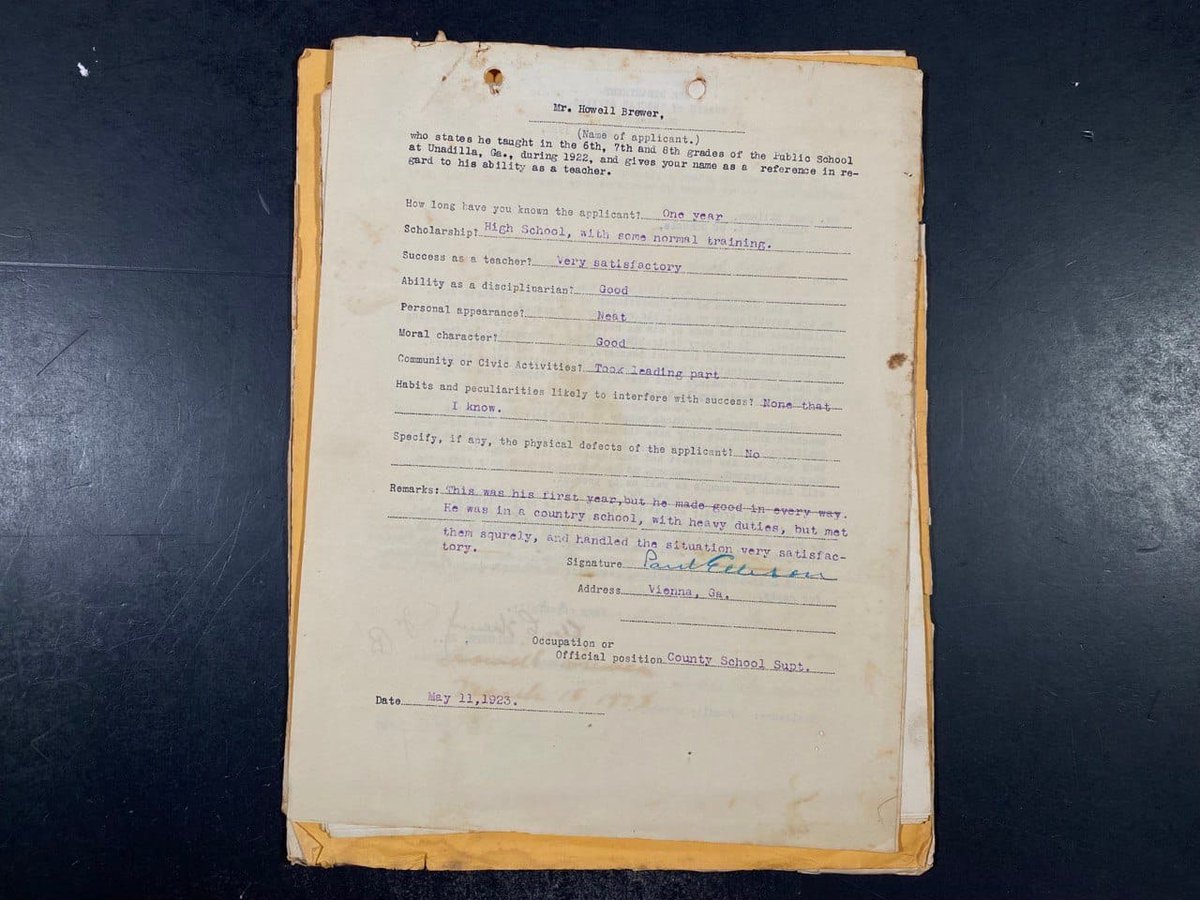 Mr. Howell Brewer,
(Name of applicant.)
who states he taught in the 6th, 7th and 8th grades of the Public School
at Unadilla, Ga., during 1922, and gives your name as a reference in re-
gard to his ability as a teacher.
How long have you known the applicant? One year
Scholarship? High School, with some normal training.
Success as a teacher? Very satisfactory
Ability as a disciplinarian? Good
Personal appearance? Neat
Moral character? Good
Community or Civic Activities? Took leading part
Habits and peculiarities likely to interfere with success? None that
I know.
Specify, if any, the physical defects of the applicant? No
Remarks: This was his first year,but he made good in every way.
He was in a country school, with heavy duties, but met
them squrely, and handled the situation very satisfac-
tory.
Signature Paul Ellison
Address Vienna, Ga.
Occupation or
Official position County School Supt.
Date May 11,1923.